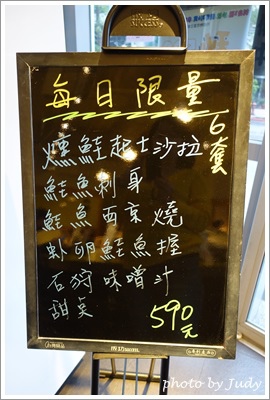 SUCCESS
每日限量
6套
燻鮭起士沙拉
鮭魚刺身
鮭魚西京燒
虾卵鮭魚握
石狩味噌汁
甜点
590元
photo by Judy